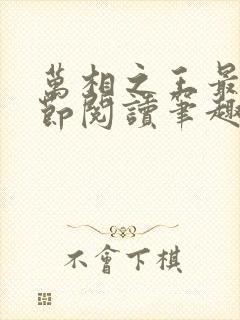 萬相之王最
節閱讀筆趣
不會下棋